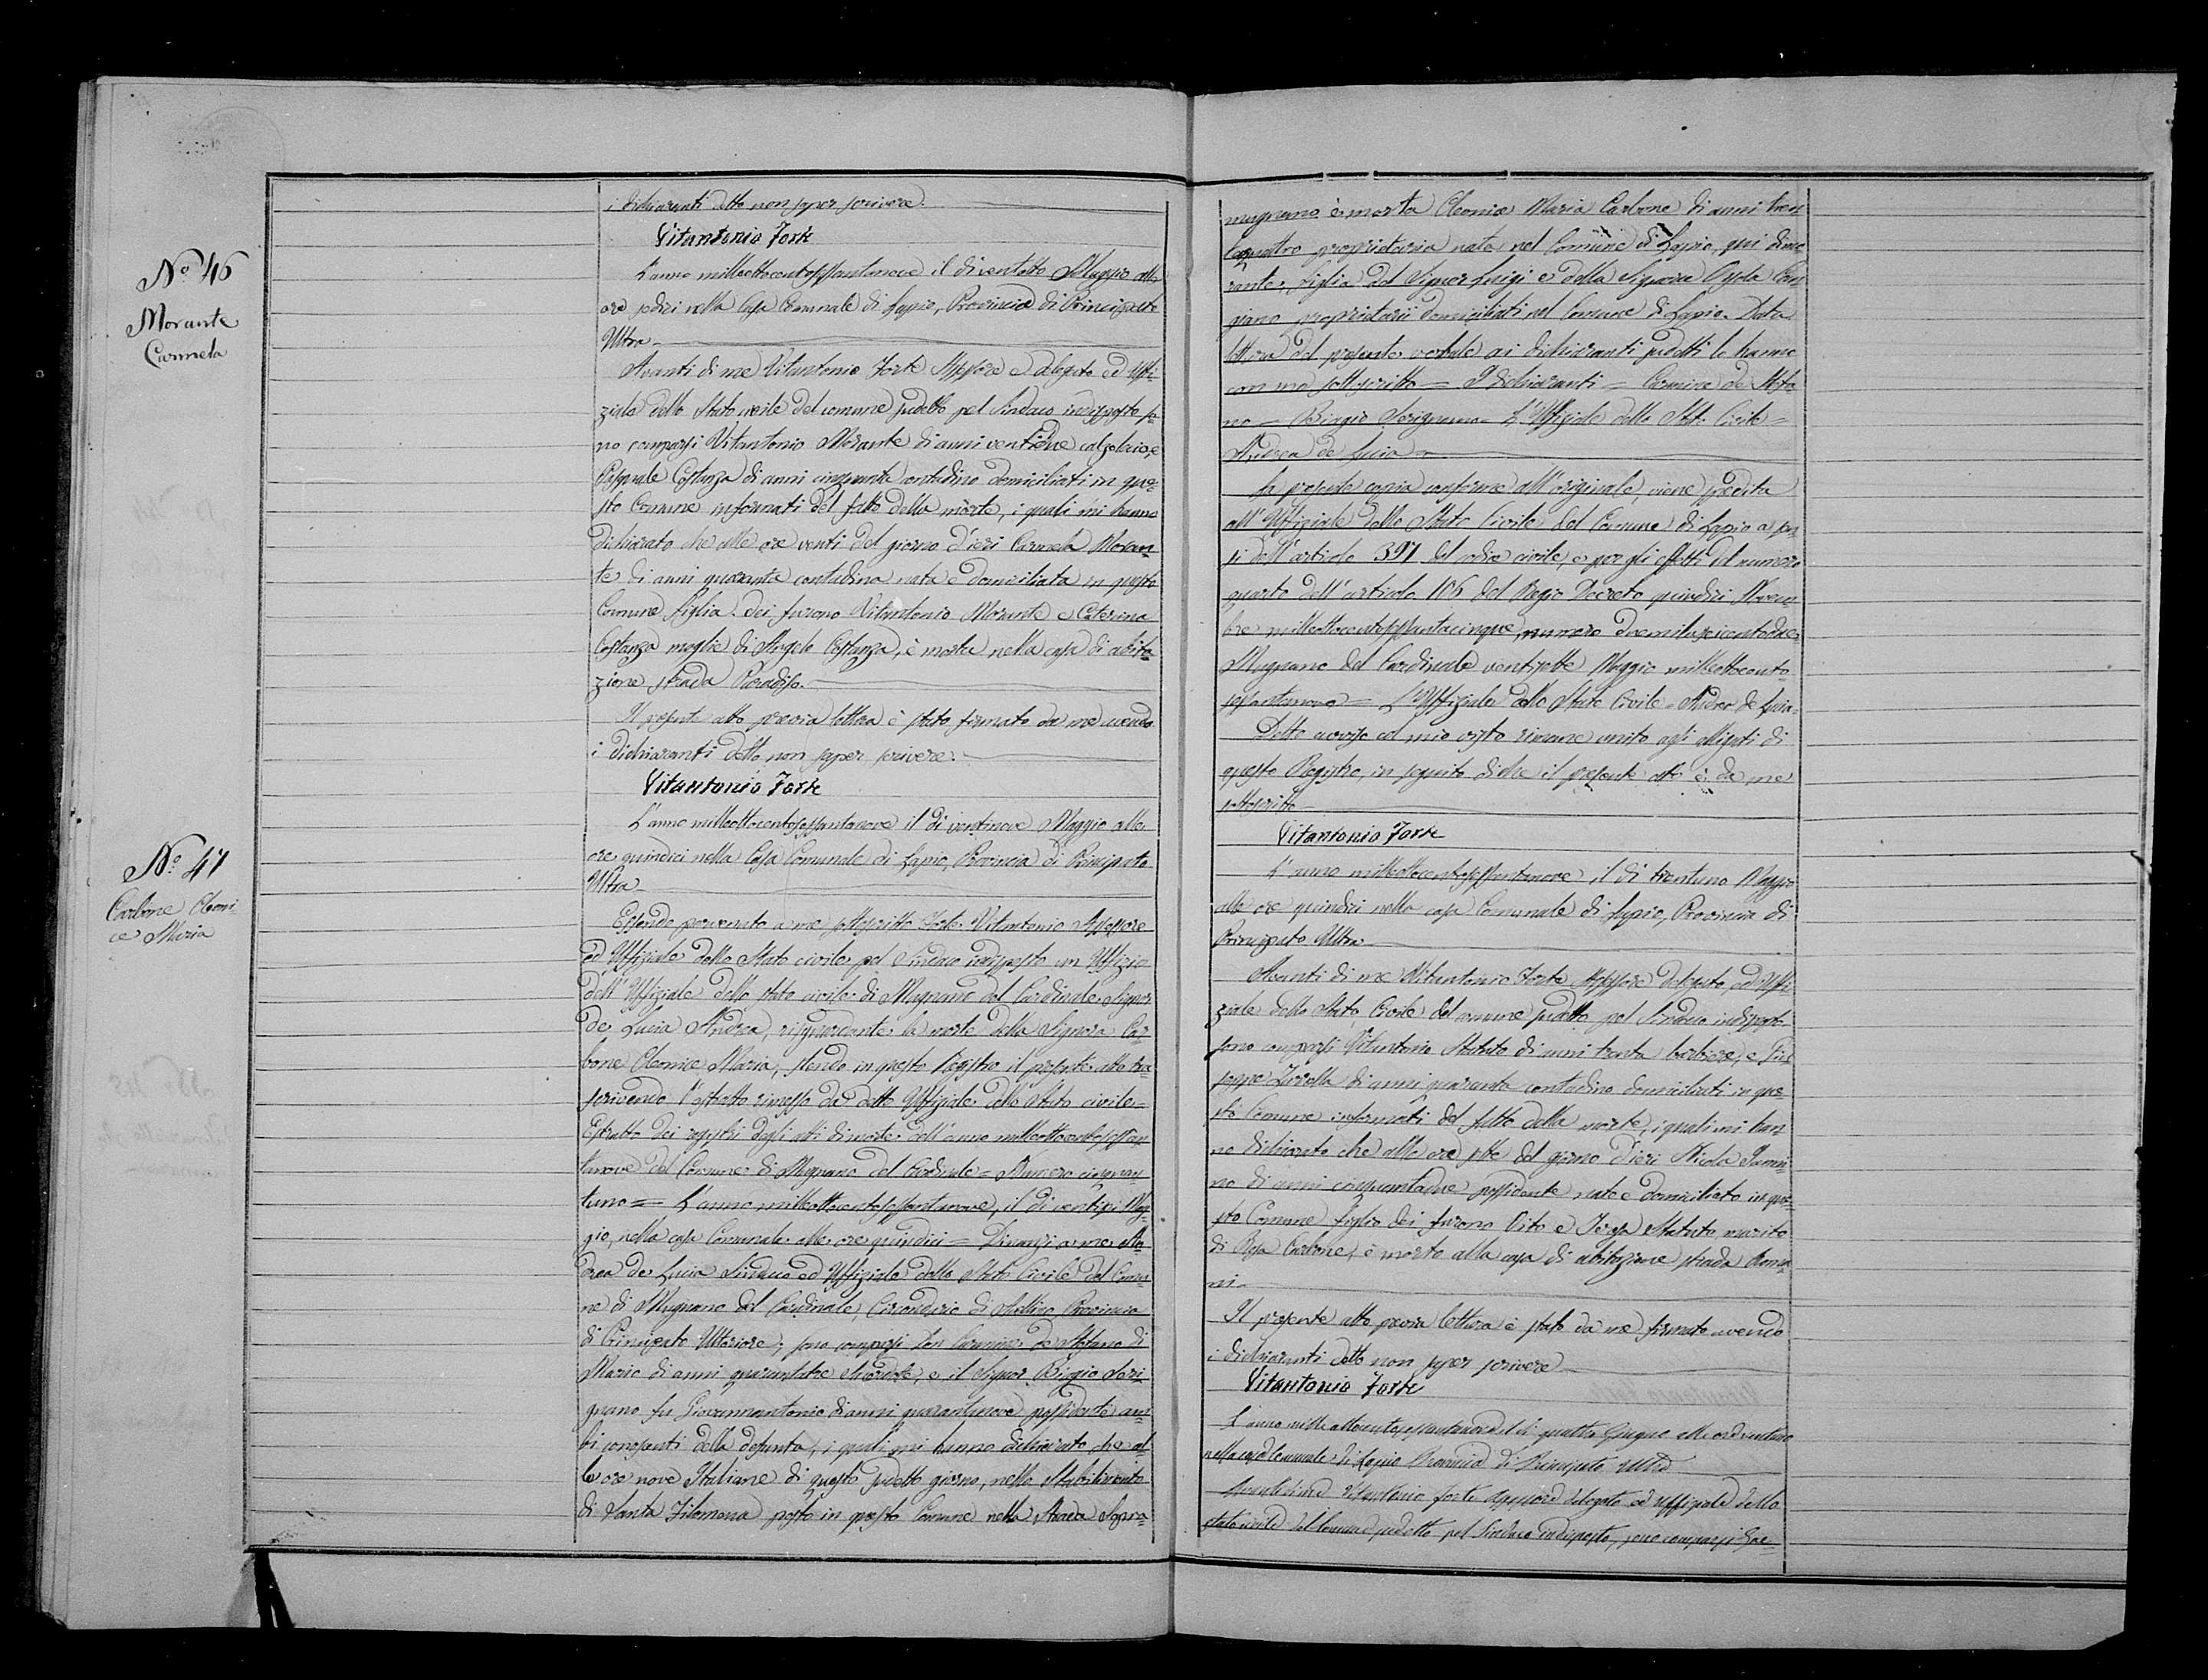 i dichiaranti detto non saper scrivere.
Vitantonio Forte
N.º 46
Morante
Carmela
L'anno milleottocentosettantanove il dì ventotto Maggio alle
ore sedici nella Casa Comunale di Lapio, Provincia di Principato
Ultra
Avanti di me Vitantonio Forte Assessore Delegato ed Uffi-
ziale dello Stato civile del comune sudetto pel Sindaco indisposto so-
no comparsi Vitantonio Morante di anni ventidue calzolaio, e
Pasquale Costanza di anni cinquanta contadino domiciliati in que-
sto Comune informati del fatto della morte, i quali mi hanno
dichiarato che alle ore venti del giorno d'ieri Carmela Moran-
te di anni quaranta contadina nata e domiciliata in questo
Comune figlia dei furono Vitantonio Morante e Caterina
Costanza moglie di Angelo Costanza, è morta nella casa di abita-
zione strada Paradiso.
Il presente atto previa lettura è stato firmato da me avendo
i dichiaranti detto non saper scrivere.
Vitantonio Forte
N.º 47
Carbone Cleoni-
ce Maria
L'anno milleottocentosettantanove il dì ventinove Maggio alle
ore quindici nella Casa Comunale di Lapio, Provincia di Principato
Ultra
Essendo pervenuto a me sottoscritto Forte Vitantonio Assessore
ed Uffiziale dello Stato civile pel Sindaco indisposto un Uffizio
dell'Uffiziale dello stato civile di Mugnano del Cardinale Signor
de Lucia Andrea, risguardante la morte della Signora Car-
bone Cleonice Maria, stendo in questo Registro il presente atto tra-
scrivendo l'estratto rimesso da detto Uffiziale dello Stato civile =
Estratto dei registri degli atti di morte dell'anno milleottocentosettan-
tanove del Comune di Mugnano del Cardinale = Numero cinquan-
tuno = L'anno milleottocentosettantanove, il dì ventisei Mag-
gio, nella casa Comunale alle ore quindici = Dinanzi a me An-
drea de Lucia Sindaco ed Uffiziale dello Stato Civile del Comu-
ne di Mugnano del Cardinale, Circondario di Avellino Provincia
di Principato Ulteriore, sono comparsi Don Carmine de Stefano di
Mario di anni quarantatre Sacerdote, e il Signor Biagio Seri-
gnano fu Giovannantonio di anni quarantanove possidente am-
bi conoscenti della defunta, i quali mi hanno dichiarato che al-
le ore nove Italiane di questo sudetto giorno, nello Stabilimento
di Santa Filomena posto in questo Comune nella Strada Sopra-
mugnano è morta Cleonice Maria Carbone di anni tren-
taquattro proprietaria nata nel Comune di Lapio, qui dimo-
rante, figlia del Signor Luigi e della Signora
giano proprietarii domiciliati nel Comune di Lapio. Data
lettura del presente verbale ai dichiaranti sudetti lo hanno
con me sottoscritto = I dichiaranti = Carmine de Stefa-
no = Biagio Serignano = L'Uffiziale dello Stato Civile =
Andrea de Lucia
La presente copia conforme all'originale, viene spedita
all'Uffiziale dello Stato Civile del Comune di Lapio a sen-
si dell'articolo 397 del codice civile, e per gli effetti del numero
quarto dell'articolo 106 del Regio Decreto quindici Novem-
bre milleottocentosessantacinque, numero duemilaseicentodue
Mugnano del Cardinale ventisette Maggio milleottocento-
settantanove = L'Uffiziale dello Stato Civile = Andrea de Lucia
Detto avviso col mio visto rimane unito agli alligati di
questo Registro, in seguito di che il presente atto è da me
sottoscritto
Vitantonio Forte
L'anno milleottocentosettantanove, il dì trentuno Maggio
alle ore quindici nella casa Comunale di Lapio, Provincia di
Principato Ultra
Avanti di me Vitantonio Forte Assessore delegato, ed Uffi-
ziale dello Stato Civile del comune sudetto pel Sindaco indisposto
sono comparsi Vitantonio Statuto di anni trenta barbiere, e Giu-
seppe Zirella di anni quaranta contadino domiciliati in que-
sto Comune informati del fatto della morte, i quali mi han-
no dichiarato che alle ore sette del giorno d'ieri Nicola
no di anni cinquantadue possidente nato e domiciliato in que-
sto Comune figlio dei furono Vito e Teresa Statuto, marito
di Rosa Carbone, è morto alla casa di abitazione strada Roma-
ni
Il presente atto previa lettura è stato da me firmato avendo
i dichiaranti detto non saper scrivere
Vitantonio Forte
L'anno milleottocentosettantanove il dì quattro Giugno alle ore ventuno
nella casa Comunale di Lapio Provincia di Principato Ultra
Avanti di me Vitantonio Forte Assessore delegato ed uffiziale dello
stato civile del Comune sudetto pel Sindaco indisposto, sono comparsi